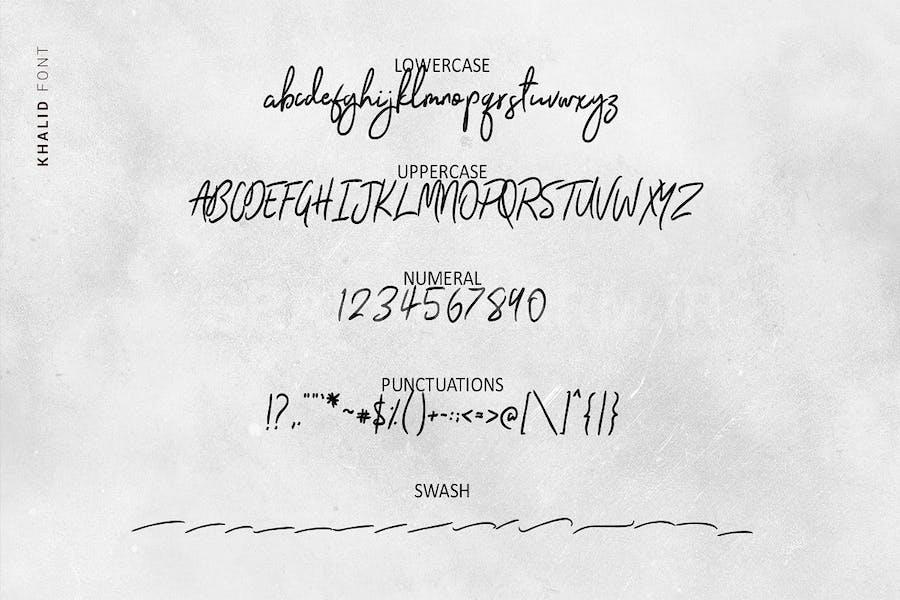 KHALID FONT
LOWERCASE
abcdefghijklmnopqrstuvwxyz
UPPERCASE
ABCDEFGHIJKLMNOPQRSTUVWXYZ
NUMERAL
1234567890
PUNCTUATIONS
!?,.""''*~#$%()+-:;<=>@[\]^{|}
SWASH